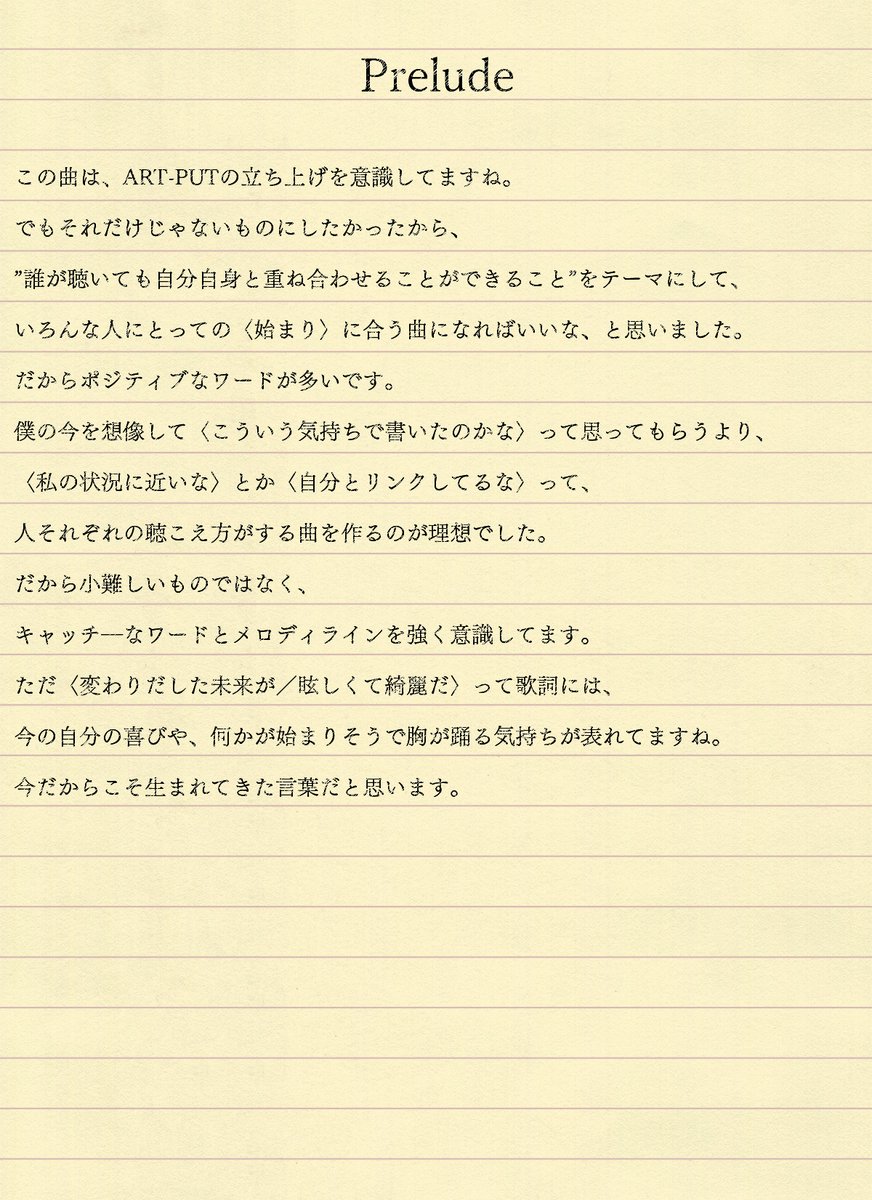 Prelude
この曲は、ART-PUTの立ち上げを意識してますね。
でもそれだけじゃないものにしたかったから、
”誰が聴いても自分自身と重ね合わせることができること”をテーマにして、
いろんな人にとっての〈始まり〉に合う曲になればいいな、と思いました。
だからポジティブなワードが多いです。
僕の今を想像して〈こういう気持ちで書いたのかな〉って思ってもらうより、
〈私の状況に近いな〉とか〈自分とリンクしてるな〉って、
人それぞれの聴こえ方がする曲を作るのが理想でした。
だから小難しいものではなく、
キャッチ―なワードとメロディラインを強く意識してます。
ただ〈変わりだした未来が／眩しくて綺麗だ〉って歌詞には、
今の自分の喜びや、何かが始まりそうで胸が踊る気持ちが表れてますね。
今だからこそ生まれてきた言葉だと思います。